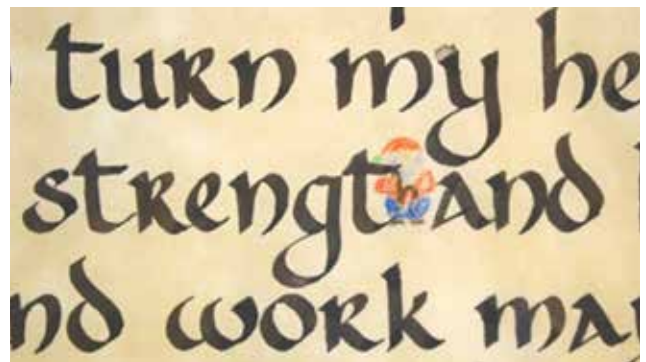 turn my he
strengt and
nd work ma